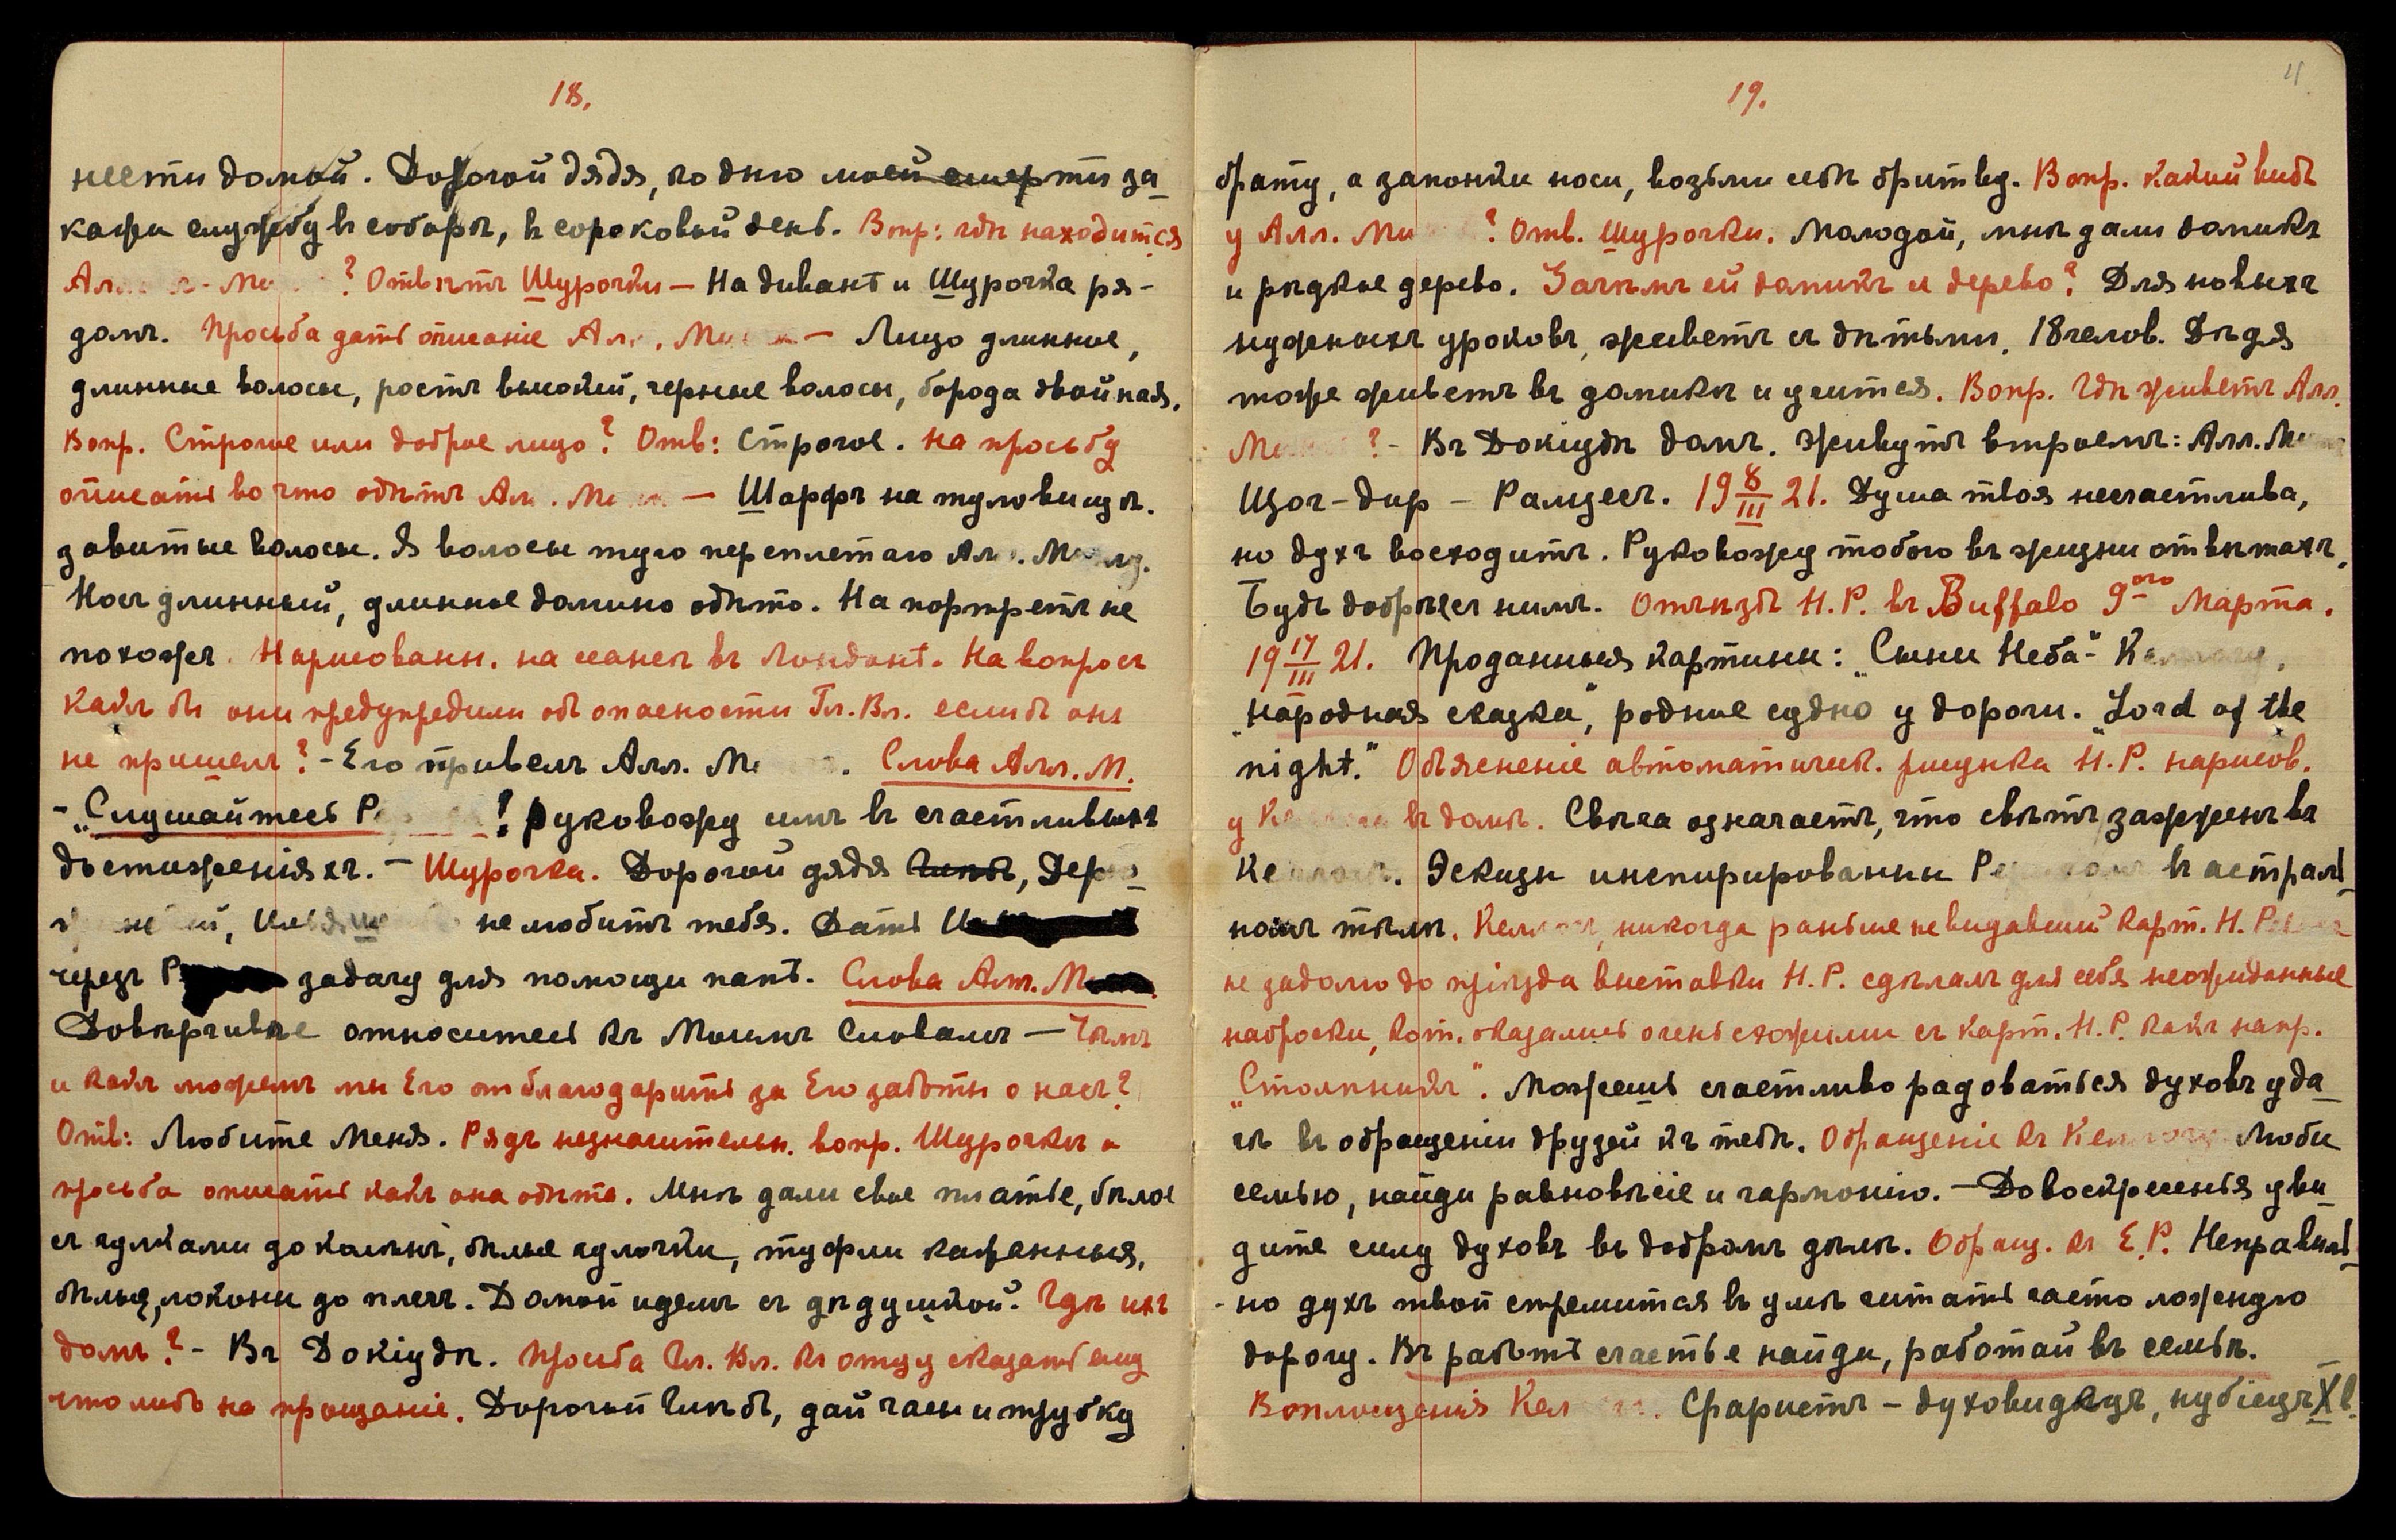 18.
нести домой. Дорогой дядя, ко дню моей смерти за-
кажи службу въ соборѣ, въ сороковый день. Вопр: гдѣ находится
? Отвѣтъ Шурочки — На диванѣ и Шурочка ря-
домъ. Просьба дать описаніе — Лицо длинное,
длинные волосы, ростъ высокій, черные волосы, борода двойная.
Вопр. Строгое или доброе лицо? Отв: Строгое. На просьбу
описать во что одѣтъ — Шарфъ на туловищѣ.
завитые волосы. Я волосы туго переплетаю
Носъ длинный, длинное домино одѣто. На портретъ не
похожъ. Нарисованн. на сеансѣ въ Лондонѣ. На вопросъ
какъ бы они предупредили объ опасности Гл. Вл. еслибъ онъ
не пришелъ? - Его привелъ Алл. М . Слова Алл. М.
- „Слушайтесь Р ! Руковожу имъ въ счастливыхъ
достиженіяхъ. — Шурочка. Дорогой дядя
не любитъ тебя. Дать
черезъ Р задачу для помощи папѣ. Слова Алл. М
Довѣрчивѣе относитесь къ Моимъ Словамъ — Чѣмъ
и какъ можемъ мы Его отблагодарить за Его заботы о насъ?
Отв: Любите Меня. Рядъ незначительн. вопр. Шурочкѣ и
просьба описать какъ она одѣта. Мнѣ дали свое платье, бѣлое
до колѣнъ, бѣлые чулочки, туфли кожанныя,
бѣлые, локоны до плечъ. Домой идемъ съ дѣдушкой. Гдѣ ихъ
домъ? - Въ Докіудѣ. Просьба Гл. Вл. къ отцу сказать ему
что либо на прощаніе. Дорогой Глѣбъ, дай часы и трубку
19.
брату, а запонки носи, возьми себѣ бритву. Вопр. Какой видъ
у Алл. Ми ? Отв. Шурочки. Молодой, мнѣ дали домикъ
и рѣдкое дерево. Зачѣмъ ей домикъ и дерево? Для новыхъ
нужныхъ уроковъ, живетъ съ дѣтьми. 18 челов. Дѣдя
тоже живетъ въ домикѣ и учится. Вопр. Гдѣ живетъ Алл.
М ? - Въ Докіудѣ домъ. Живутъ втроемъ: Алл. М
Цог-дир - Рамзесъ. 19 8/III 21. Душа твоя несчастлива,
но духъ восходитъ. Руковожу тобою въ жизни отвѣтахъ.
Будь добрѣе съ нимъ. Отъѣздъ Н. Р. въ Buffalo 9ого Марта.
19 17/III 21. Проданныя картины: „Сыны Неба"
„народная сказка", родное судно у дороги. „Lord of the
night." Объясненіе автоматическ. рисунка Н. Р. нарисов.
у К въ домѣ. Свѣча означаетъ, что свѣтъ зажженъ въ
Эскизы инспирированы Р въ астраль-
номъ тѣлѣ. никогда раньше не видавшій карт. Н. Р
не задолго до пріѣзда выставки Н. Р. сдѣлалъ для себя неожиданные
наброски, кот. оказались очень схожими съ карт. Н. Р. какъ напр.
„Столпникъ". Можешь счастливо радоваться духовъ уда-
чѣ въ обращеніи друзей къ тебѣ. Обращеніе къ Люби
семью, найди равновѣсіе и гармонію. — До воскресенья уви-
дите силу духовъ въ добромъ дѣлѣ. Обращ. къ Е. Р. Неправиль-
но духъ твой стремится въ умѣ читать часто ложную
дорогу. Въ работѣ счастье найди, работай въ семьѣ.
Воплощенія Кел . Сфаристъ - духовидецъ, нубіецъ X в.